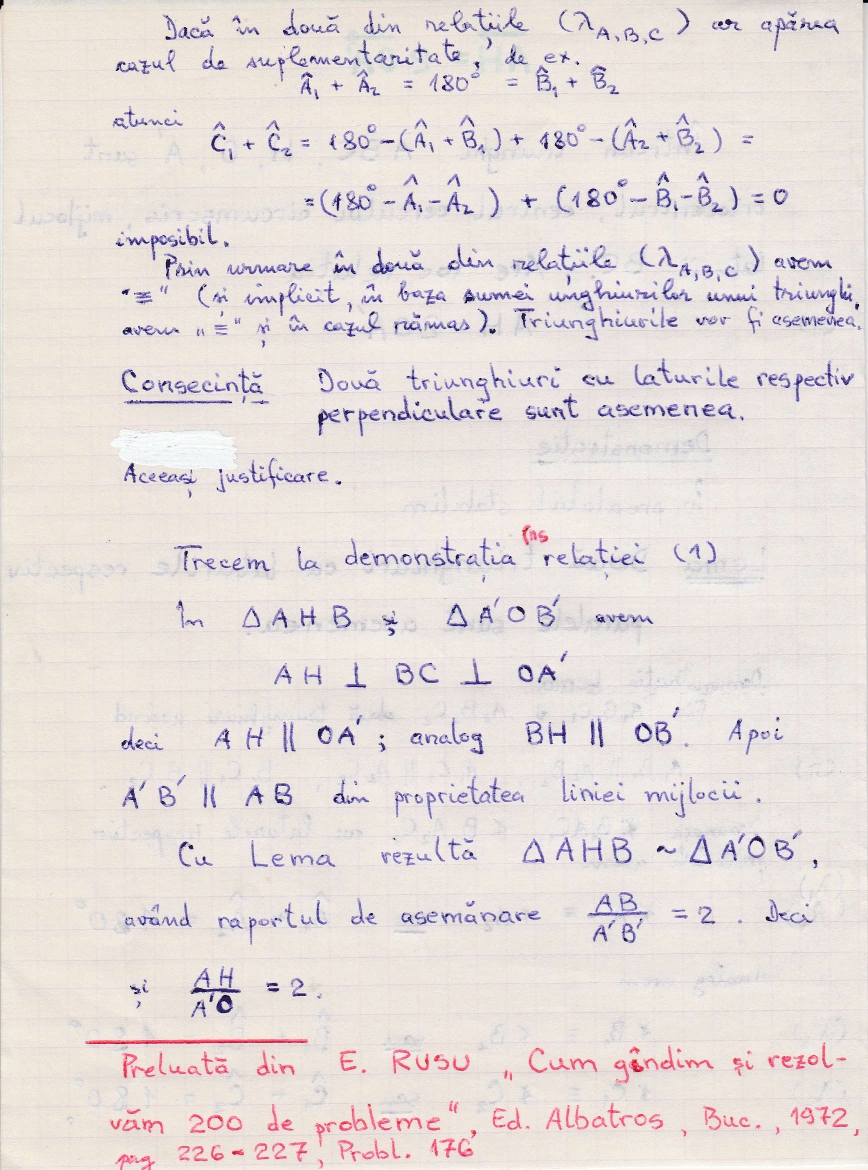 Dacă în două din relațiile (λA,B,C) ar apărea
cazul de suplementaritate, de ex.
Â₁ + Â₂ = 180° = B̂₁ + B̂₂
atunci
Ĉ₁ + Ĉ₂ = 180° - (Â₁ + B̂₁) + 180° - (Â₂ + B̂₂) =
= (180° - Â₁ - Â₂) + (180° - B̂₁ - B̂₂) = 0
imposibil.
Prin urmare în două din relațiile (λA,B,C) avem
"≡" (și implicit, în baza sumei unghiurilor unui triunghi,
avem „≡" și în cazul rămas). Triunghiurile vor fi asemenea.
Consecință Două triunghiuri cu laturile respectiv
perpendiculare sunt asemenea.
Aceeași justificare.
Trecem la demonstrația relației (1)
În Δ AHB și Δ A′OB′ avem
AH ⊥ BC ⊥ OA′
deci AH || OA′ ; analog BH || OB′. Apoi
A′B′ || AB din proprietatea liniei mijlocii.
Cu Lema rezultă Δ AHB ~ Δ A′OB′,
având raportul de asemănare AB/A′B′ = 2 . Deci
și AH/A′O = 2.
Preluată din E. RUSU „Cum gîndim și rezol-
văm 200 de probleme", Ed. Albatros, Buc., 1972,
pag 226-227, Probl. 176